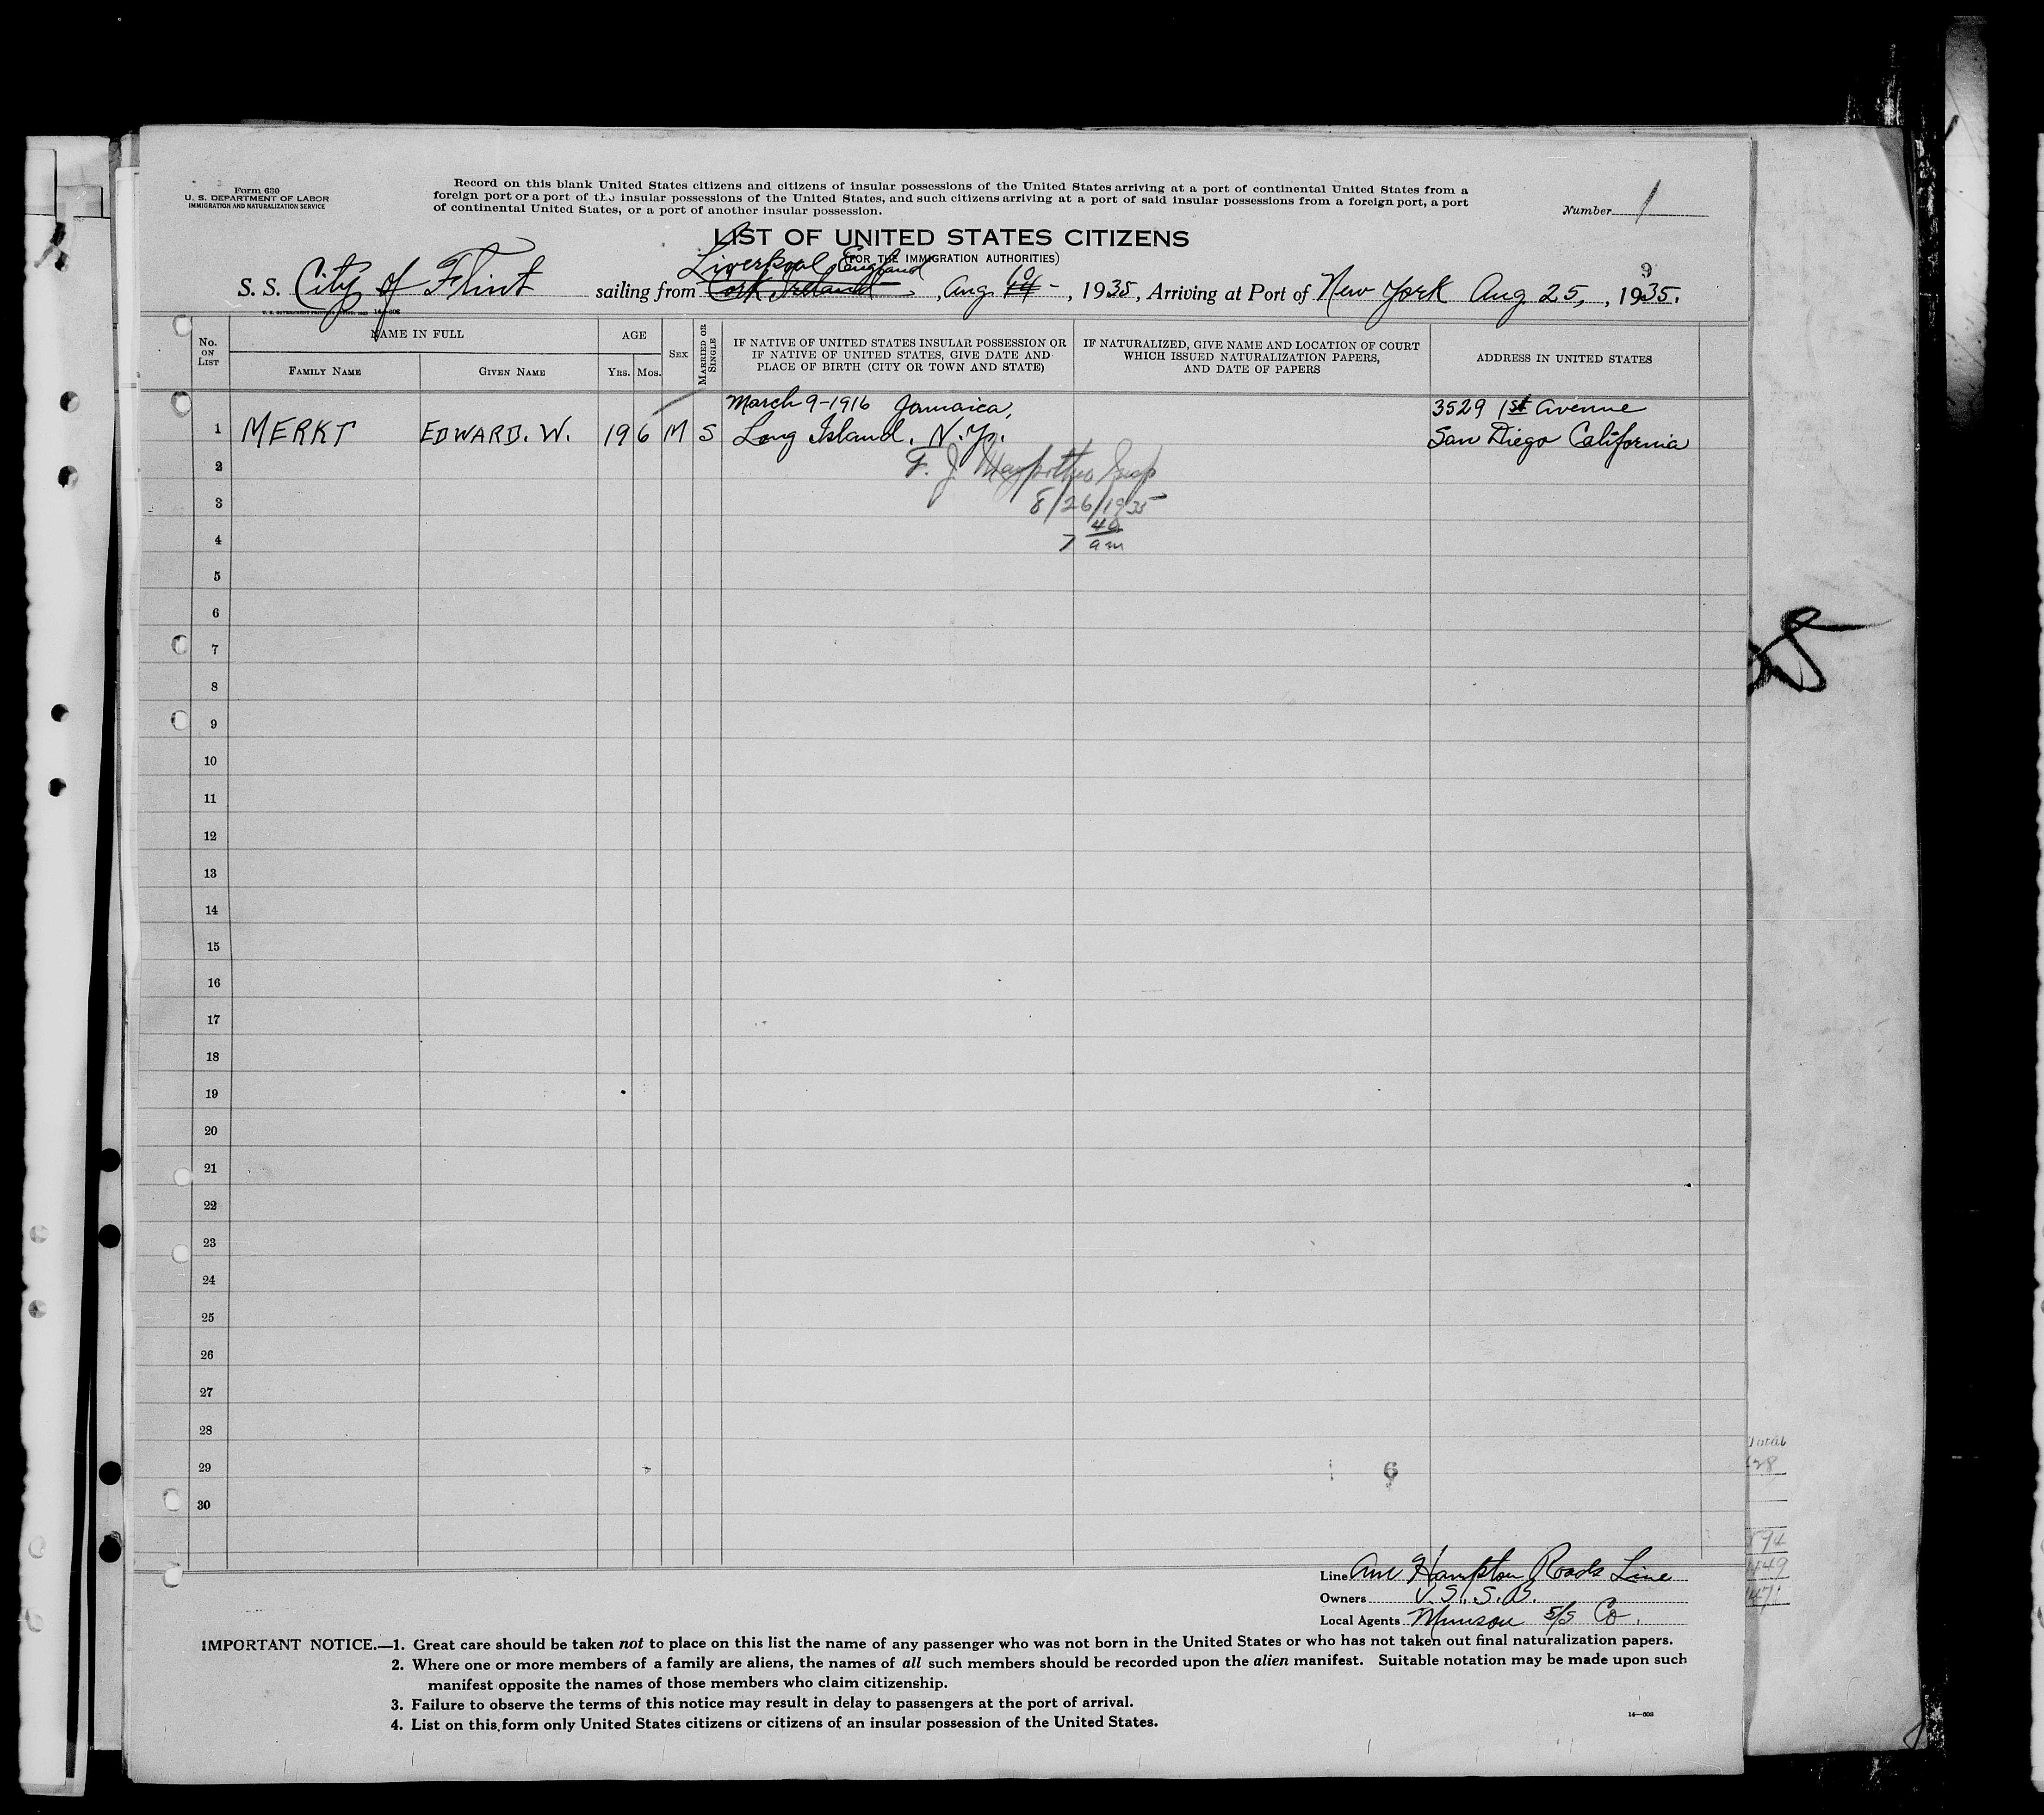 Form 630
U. S. DEPARTMENT OF LABOR
IMMIGRATION AND NATURALIZATION SERVICE
Record on this blank United States citizens and citizens of insular possessions of the United States arriving at a port of continental United States from a
foreign port or a port of the insular possessions of the United States, and such citizens arriving at a port of said insular possessions from a foreign port, a port
of continental United States, or a port of another insular possession.
Number 1
LIST OF UNITED STATES CITIZENS
(FOR THE IMMIGRATION AUTHORITIES)
Liverpool England
S. S. City of Flint sailing from Cork Ireland, Aug. 10 -, 1935, Arriving at Port of New York Aug 25, , 1935.
9
14-608
No. ON LIST
NAME IN FULL
FAMILY NAME
GIVEN NAME
AGE
YRS.
MOS.
SEX
MARRIED OR SINGLE
IF NATIVE OF UNITED STATES INSULAR POSSESSION OR
IF NATIVE OF UNITED STATES, GIVE DATE AND
PLACE OF BIRTH (CITY OR TOWN AND STATE)
IF NATURALIZED, GIVE NAME AND LOCATION OF COURT
WHICH ISSUED NATURALIZATION PAPERS,
AND DATE OF PAPERS
ADDRESS IN UNITED STATES
March 9-1916 Jamaica, 3529 1st Avenue
1 MERKT EDWARD. W. 19 6 M S Long Island. N.Y. San Diego California
2 F. J.
3 8/26/1935
40
4 7 am
5
6
7
8
9
10
11
12
13
14
15
16
17
18
19
20
21
22
23
24
25
26
27
28
29 6
30
Total
Line Am Hampton Roads Line
Owners U.S.S.B.
Local Agents Munson S/S Co.
IMPORTANT NOTICE.—1. Great care should be taken not to place on this list the name of any passenger who was not born in the United States or who has not taken out final naturalization papers.
2. Where one or more members of a family are aliens, the names of all such members should be recorded upon the alien manifest. Suitable notation may be made upon such
manifest opposite the names of those members who claim citizenship.
3. Failure to observe the terms of this notice may result in delay to passengers at the port of arrival.
4. List on this form only United States citizens or citizens of an insular possession of the United States.
14—608